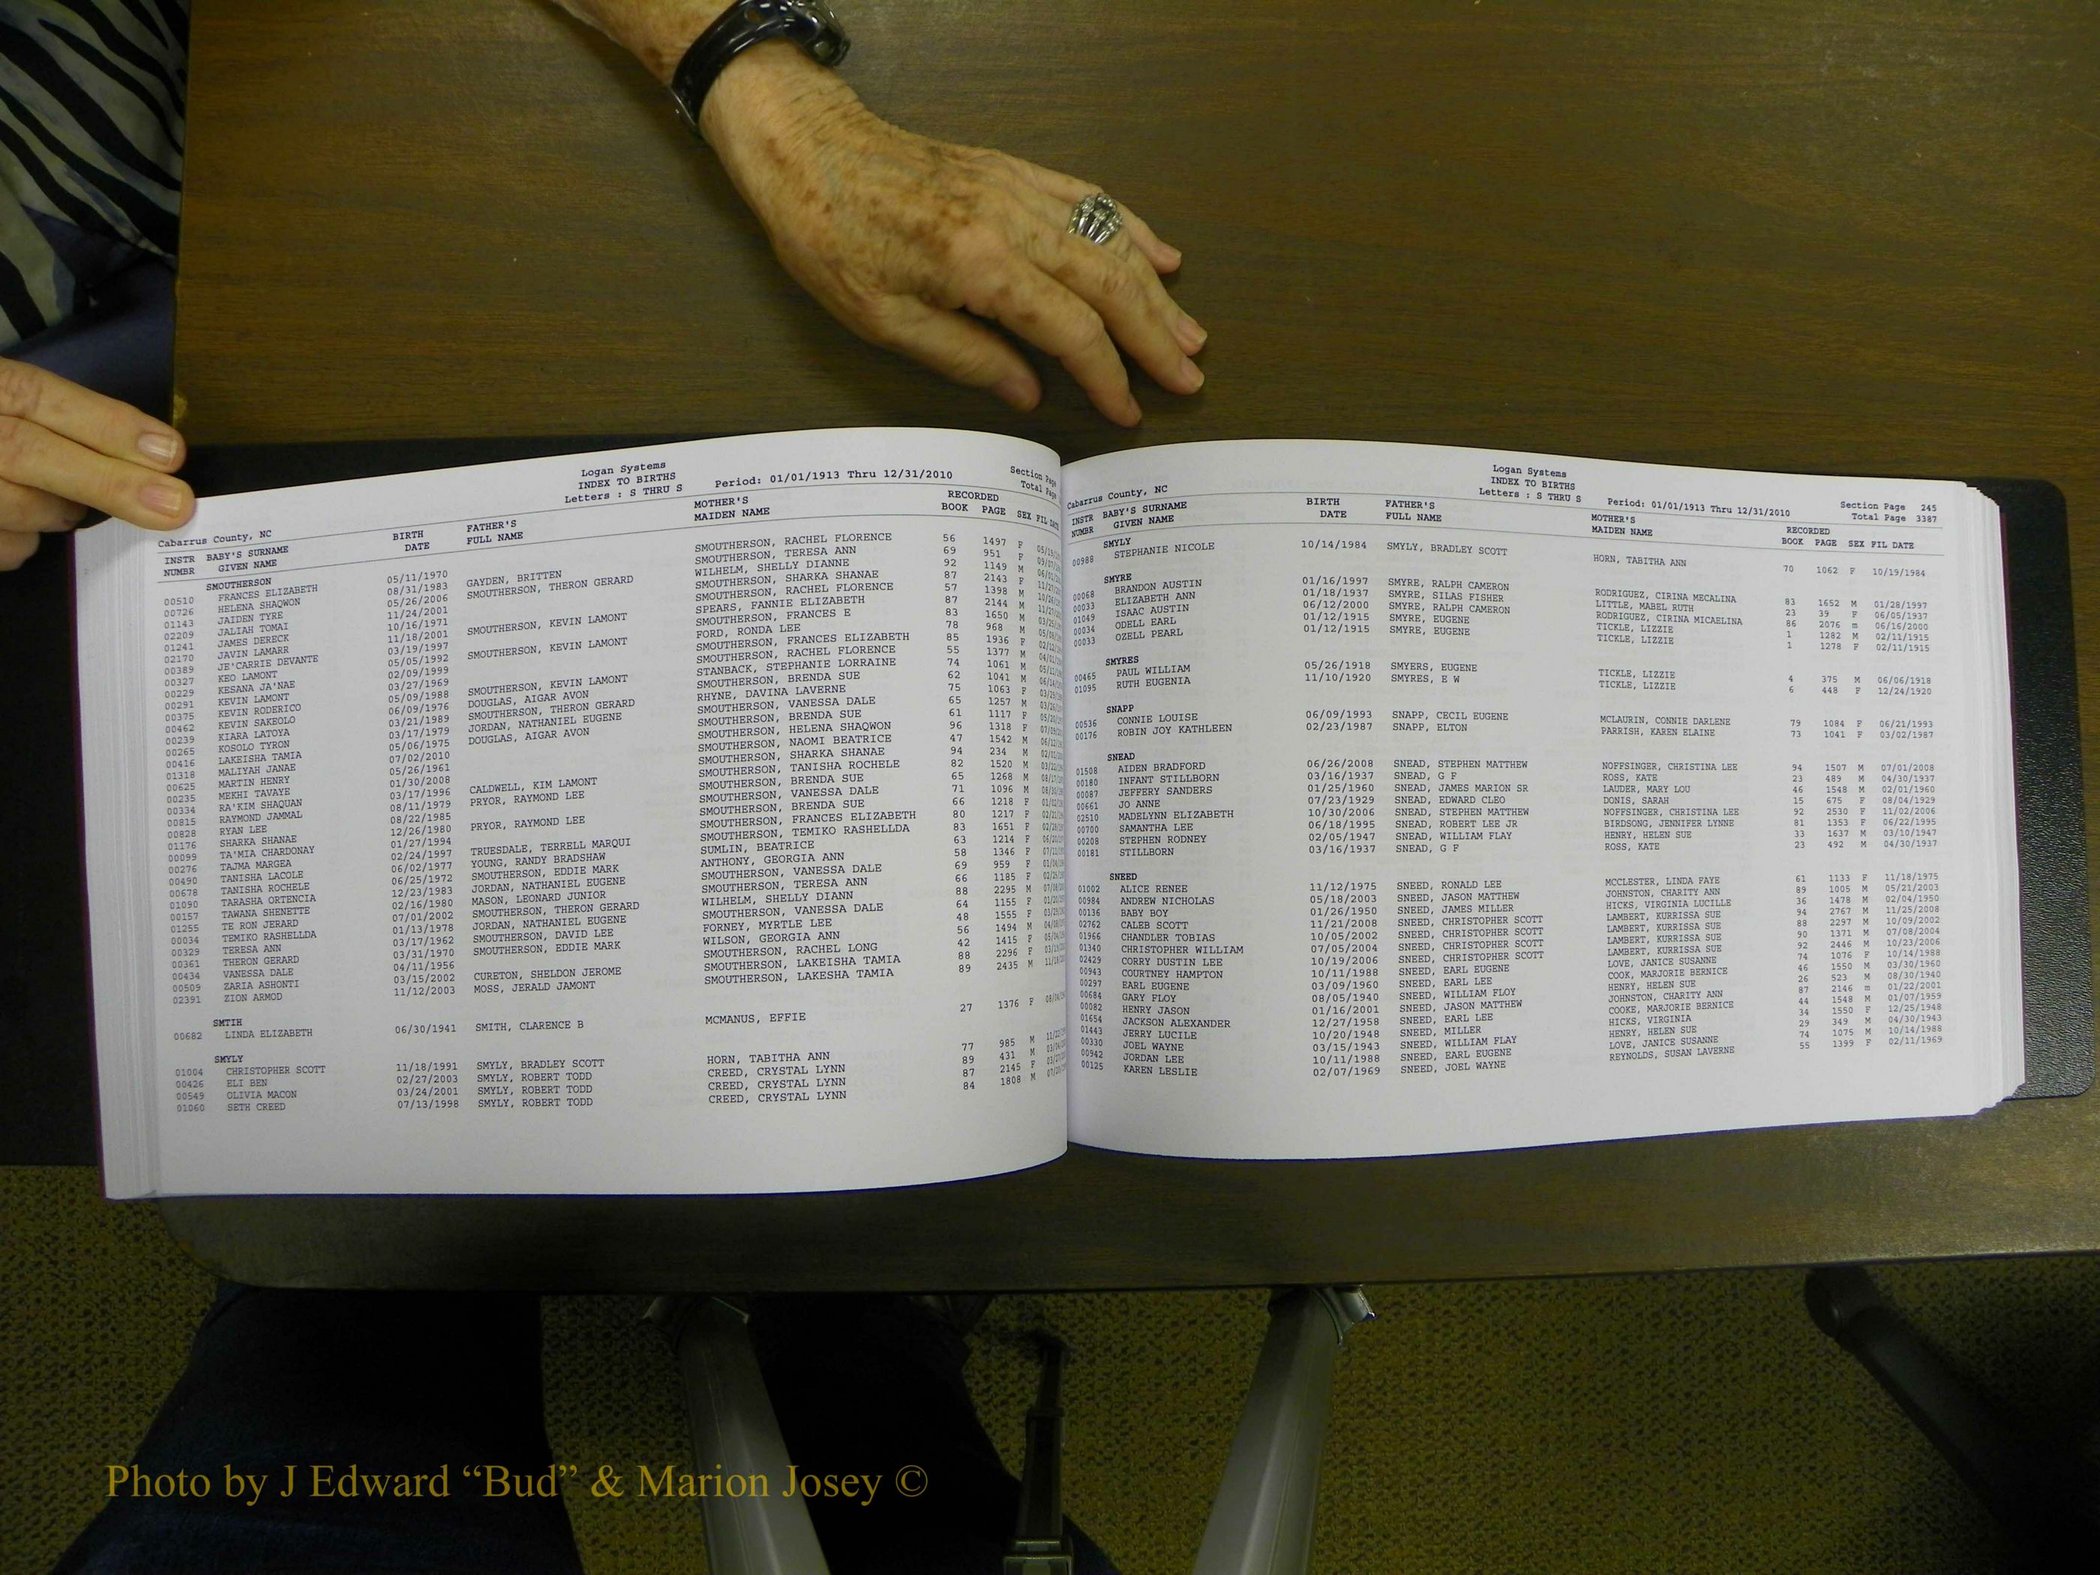 Logan Systems
INDEX TO BIRTHS
Letters : S THRU S
Period: 01/01/1913 Thru 12/31/2010
Section Page
Total Page
Cabarrus County, NC
INSTR BABY'S SURNAME BIRTH FATHER'S MOTHER'S RECORDED
NUMBR GIVEN NAME DATE FULL NAME MAIDEN NAME BOOK PAGE SEX FIL DATE
SMOUTHERSON
00510 FRANCES ELIZABETH 05/11/1970 SMOUTHERSON, RACHEL FLORENCE 56 1497 F
00726 HELENA SHAQWON 08/31/1983 GAYDEN, BRITTEN SMOUTHERSON, TERESA ANN 69 951 F
01143 JAIDEN TYRE 05/26/2006 SMOUTHERSON, THERON GERARD WILHELM, SHELLY DIANNE 92 1149 M
02209 JALIAH TOMAI 11/24/2001 SMOUTHERSON, SHARKA SHANAE 87 2143 F
01241 JAMES DERECK 10/16/1971 SMOUTHERSON, RACHEL FLORENCE 57 1398 M
02170 JAVIN LAMARR 11/18/2001 SMOUTHERSON, KEVIN LAMONT SPEARS, FANNIE ELIZABETH 87 2144 M
00389 JE'CARRIE DEVANTE 03/19/1997 SMOUTHERSON, FRANCES E 83 1650 M
00327 KEO LAMONT 05/05/1992 SMOUTHERSON, KEVIN LAMONT FORD, RONDA LEE 78 968 M
00229 KESANA JA'NAE 02/09/1999 SMOUTHERSON, FRANCES ELIZABETH 85 1936 F
00291 KEVIN LAMONT 03/27/1969 SMOUTHERSON, RACHEL FLORENCE 55 1377 M
00375 KEVIN RODERICO 05/09/1988 SMOUTHERSON, KEVIN LAMONT STANBACK, STEPHANIE LORRAINE 74 1061 M
00462 KEVIN SAKEOLO 06/09/1976 DOUGLAS, AIGAR AVON SMOUTHERSON, BRENDA SUE 62 1041 M
00239 KIARA LATOYA 03/21/1989 SMOUTHERSON, THERON GERARD RHYNE, DAVINA LAVERNE 75 1063 F
00265 KOSOLO TYRON 03/17/1979 JORDAN, NATHANIEL EUGENE SMOUTHERSON, VANESSA DALE 65 1257 M
00416 LAKEISHA TAMIA 05/06/1975 DOUGLAS, AIGAR AVON SMOUTHERSON, BRENDA SUE 61 1117 F
01318 MALIYAH JANAE 07/02/2010 SMOUTHERSON, HELENA SHAQWON 96 1318 F
00625 MARTIN HENRY 05/26/1961 SMOUTHERSON, NAOMI BEATRICE 47 1542 M
00235 MEKHI TAVAYE 01/30/2008 SMOUTHERSON, SHARKA SHANAE 94 234 M
00334 RA'KIM SHAQUAN 03/17/1996 CALDWELL, KIM LAMONT SMOUTHERSON, TANISHA ROCHELE 82 1520 M
00815 RAYMOND JAMMAL 08/11/1979 PRYOR, RAYMOND LEE SMOUTHERSON, BRENDA SUE 65 1268 M
00828 RYAN LEE 08/22/1985 SMOUTHERSON, VANESSA DALE 71 1096 M
01176 SHARKA SHANAE 12/26/1980 PRYOR, RAYMOND LEE SMOUTHERSON, BRENDA SUE 66 1218 F
00099 TA'MIA CHARDONAY 01/27/1994 SMOUTHERSON, FRANCES ELIZABETH 80 1217 F
00276 TAJMA MARGEA 02/24/1997 TRUESDALE, TERRELL MARQUI SMOUTHERSON, TEMIKO RASHELLDA 83 1651 F
00490 TANISHA LACOLE 06/02/1977 YOUNG, RANDY BRADSHAW SUMLIN, BEATRICE 63 1214 F
00678 TANISHA ROCHELE 06/25/1972 SMOUTHERSON, EDDIE MARK ANTHONY, GEORGIA ANN 58 1346 F
01090 TARASHA ORTENCIA 12/23/1983 JORDAN, NATHANIEL EUGENE SMOUTHERSON, VANESSA DALE 69 959 F
00157 TAWANA SHENETTE 02/16/1980 MASON, LEONARD JUNIOR SMOUTHERSON, TERESA ANN 66 1185 F
01255 TE RON JERARD 07/01/2002 SMOUTHERSON, THERON GERARD WILHELM, SHELLY DIANN 88 2295 M
00034 TEMIKO RASHELLDA 01/13/1978 JORDAN, NATHANIEL EUGENE SMOUTHERSON, VANESSA DALE 64 1155 F
00329 TERESA ANN 03/17/1962 SMOUTHERSON, DAVID LEE FORNEY, MYRTLE LEE 48 1555 F
00361 THERON GERARD 03/31/1970 SMOUTHERSON, EDDIE MARK WILSON, GEORGIA ANN 56 1494 M
00434 VANESSA DALE 04/11/1956 SMOUTHERSON, RACHEL LONG 42 1415 F
00509 ZARIA ASHONTI 03/15/2002 CURETON, SHELDON JEROME SMOUTHERSON, LAKEISHA TAMIA 88 2296 F
02391 ZION ARMOD 11/12/2003 MOSS, JERALD JAMONT SMOUTHERSON, LAKESHA TAMIA 89 2435 M
SMTIH
00682 LINDA ELIZABETH 06/30/1941 SMITH, CLARENCE B MCMANUS, EFFIE 27 1376 F
SMYLY
01004 CHRISTOPHER SCOTT 11/18/1991 SMYLY, BRADLEY SCOTT HORN, TABITHA ANN 77 985 M
00426 ELI BEN 02/27/2003 SMYLY, ROBERT TODD CREED, CRYSTAL LYNN 89 431 M
00549 OLIVIA MACON 03/24/2001 SMYLY, ROBERT TODD CREED, CRYSTAL LYNN 87 2145 F
01060 SETH CREED 07/13/1998 SMYLY, ROBERT TODD CREED, CRYSTAL LYNN 84 1808 M
Logan Systems
INDEX TO BIRTHS
Letters : S THRU S
Period: 01/01/1913 Thru 12/31/2010
Section Page 245
Total Page 3387
Cabarrus County, NC
INSTR BABY'S SURNAME BIRTH FATHER'S MOTHER'S RECORDED
NUMBR GIVEN NAME DATE FULL NAME MAIDEN NAME BOOK PAGE SEX FIL DATE
SMYLY
00988 STEPHANIE NICOLE 10/14/1984 SMYLY, BRADLEY SCOTT HORN, TABITHA ANN 70 1062 F 10/19/1984
SMYRE
00068 BRANDON AUSTIN 01/16/1997 SMYRE, RALPH CAMERON RODRIGUEZ, CIRINA MECALINA 83 1652 M 01/28/1997
00033 ELIZABETH ANN 01/18/1937 SMYRE, SILAS FISHER LITTLE, MABEL RUTH 23 39 F 06/05/1937
01049 ISAAC AUSTIN 06/12/2000 SMYRE, RALPH CAMERON RODRIGUEZ, CIRINA MICAELINA 86 2076 m 06/16/2000
00034 ODELL EARL 01/12/1915 SMYRE, EUGENE TICKLE, LIZZIE 1 1282 M 02/11/1915
00033 OZELL PEARL 01/12/1915 SMYRE, EUGENE TICKLE, LIZZIE 1 1278 F 02/11/1915
SMYRES
00465 PAUL WILLIAM 05/26/1918 SMYERS, EUGENE TICKLE, LIZZIE 4 375 M 06/06/1918
01095 RUTH EUGENIA 11/10/1920 SMYRES, E W TICKLE, LIZZIE 6 448 F 12/24/1920
SNAPP
00536 CONNIE LOUISE 06/09/1993 SNAPP, CECIL EUGENE MCLAURIN, CONNIE DARLENE 79 1084 F 06/21/1993
00176 ROBIN JOY KATHLEEN 02/23/1987 SNAPP, ELTON PARRISH, KAREN ELAINE 73 1041 F 03/02/1987
SNEAD
01508 AIDEN BRADFORD 06/26/2008 SNEAD, STEPHEN MATTHEW NOFFSINGER, CHRISTINA LEE 94 1507 M 07/01/2008
00180 INFANT STILLBORN 03/16/1937 SNEAD, G F ROSS, KATE 23 489 M 04/30/1937
00087 JEFFERY SANDERS 01/25/1960 SNEAD, JAMES MARION SR LAUDER, MARY LOU 46 1548 M 02/01/1960
00661 JO ANNE 07/23/1929 SNEAD, EDWARD CLEO DONIS, SARAH 15 675 F 08/04/1929
02510 MADELYNN ELIZABETH 10/30/2006 SNEAD, STEPHEN MATTHEW NOFFSINGER, CHRISTINA LEE 92 2530 F 11/02/2006
00700 SAMANTHA LEE 06/18/1995 SNEAD, ROBERT LEE JR BIRDSONG, JENNIFER LYNNE 81 1353 F 06/22/1995
00208 STEPHEN RODNEY 02/05/1947 SNEAD, WILLIAM FLAY HENRY, HELEN SUE 33 1637 M 03/10/1947
00181 STILLBORN 03/16/1937 SNEAD, G F ROSS, KATE 23 492 M 04/30/1937
SNEED
01002 ALICE RENEE 11/12/1975 SNEED, RONALD LEE MCCLESTER, LINDA FAYE 61 1133 F 11/18/1975
00984 ANDREW NICHOLAS 05/18/2003 SNEED, JASON MATTHEW JOHNSTON, CHARITY ANN 89 1005 M 05/21/2003
00136 BABY BOY 01/26/1950 SNEED, JAMES MILLER HICKS, VIRGINIA LUCILLE 36 1478 M 02/04/1950
02762 CALEB SCOTT 11/21/2008 SNEED, CHRISTOPHER SCOTT LAMBERT, KURRISSA SUE 94 2767 M 11/25/2008
01966 CHANDLER TOBIAS 10/05/2002 SNEED, CHRISTOPHER SCOTT LAMBERT, KURRISSA SUE 88 2297 M 10/09/2002
01340 CHRISTOPHER WILLIAM 07/05/2004 SNEED, CHRISTOPHER SCOTT LAMBERT, KURRISSA SUE 90 1371 M 07/08/2004
02429 CORRY DUSTIN LEE 10/19/2006 SNEED, CHRISTOPHER SCOTT LAMBERT, KURRISSA SUE 92 2446 M 10/23/2006
00943 COURTNEY HAMPTON 10/11/1988 SNEED, EARL EUGENE LOVE, JANICE SUSANNE 74 1076 F 10/14/1988
00297 EARL EUGENE 03/09/1960 SNEED, EARL LEE COOK, MARJORIE BERNICE 46 1550 M 03/30/1960
00684 GARY FLOY 08/05/1940 SNEED, WILLIAM FLOY HENRY, HELEN SUE 26 523 M 08/30/1940
00082 HENRY JASON 01/16/2001 SNEED, JASON MATTHEW JOHNSTON, CHARITY ANN 87 2146 m 01/22/2001
01654 JACKSON ALEXANDER 12/27/1958 SNEED, EARL LEE COOKE, MARJORIE BERNICE 44 1548 M 01/07/1959
01443 JERRY LUCILE 10/20/1948 SNEED, MILLER HICKS, VIRGINIA 34 1550 F 12/25/1948
00330 JOEL WAYNE 03/15/1943 SNEED, WILLIAM FLAY HENRY, HELEN SUE 29 349 M 04/30/1943
00942 JORDAN LEE 10/11/1988 SNEED, EARL EUGENE LOVE, JANICE SUSANNE 74 1075 M 10/14/1988
00125 KAREN LESLIE 02/07/1969 SNEED, JOEL WAYNE REYNOLDS, SUSAN LAVERNE 55 1399 F 02/11/1969
Photo by J Edward “Bud” & Marion Josey ©